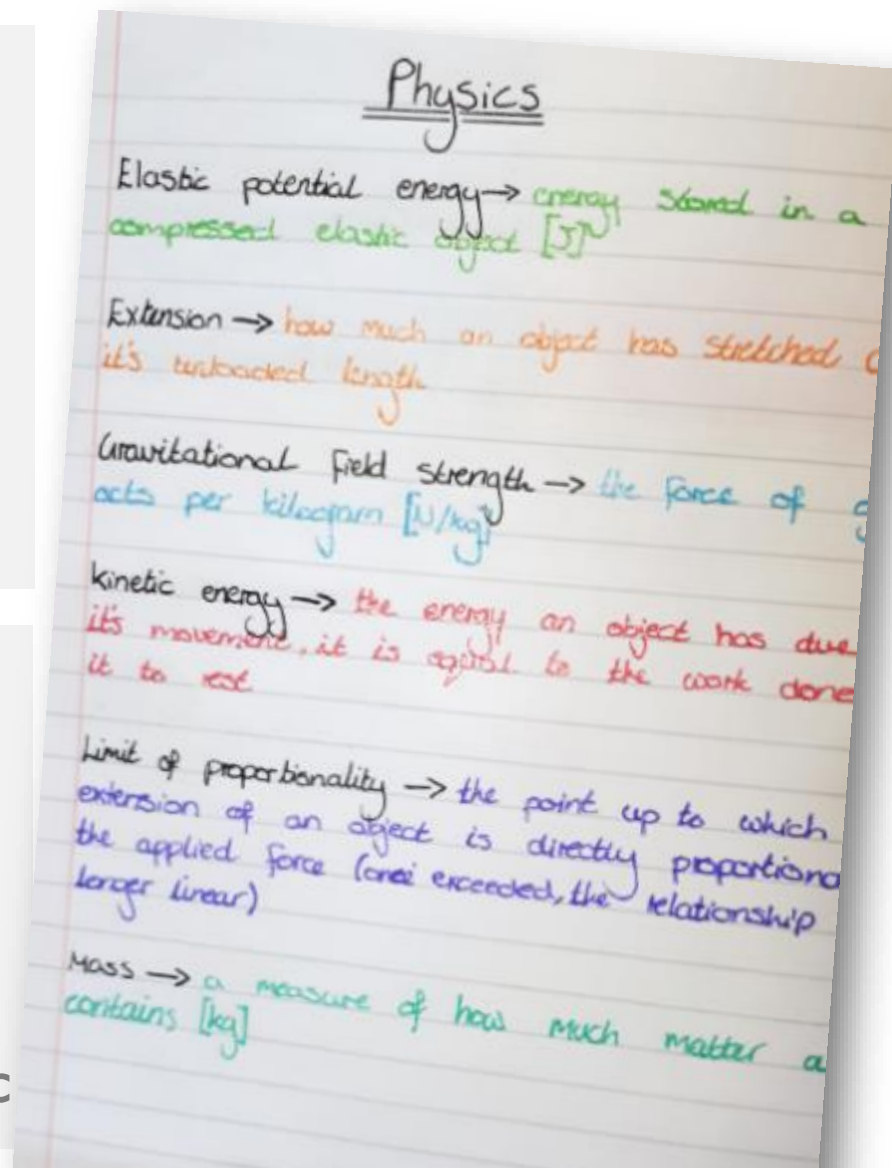 Physics
Elastic potential energy → energy stored in a
compressed elastic object [J]
Extension → how much an object has stretched
it's unloaded length
Gravitational field strength → the force of g
acts per kilogram [N/kg]
kinetic energy → the energy an object has due
it's movement, it is equal to the work done
it to rest
Limit of proportionality → the point up to which
extension of an object is directly proportiona
the applied force (once exceeded, the relationship
longer linear)
Mass → a measure of how much matter a
contains [kg]
c